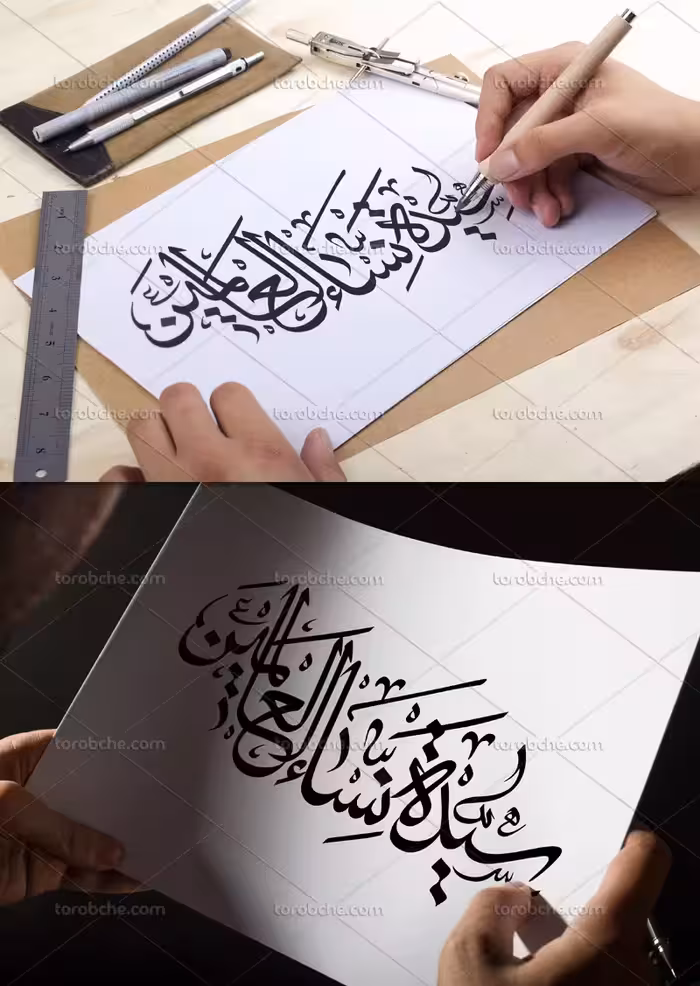 torobche.com torobche.com torobche.com
سيدة نساء العالمين
torobche.com torobche.com torobche.com
3
4
5
6
7
8
torobche.com torobche.com torobche.com
torobche.com torobche.com torobche.com
سيدة نساء العالمين
torobche.com torobche.com torobche.com
torobche.com torobche.com torobche.com